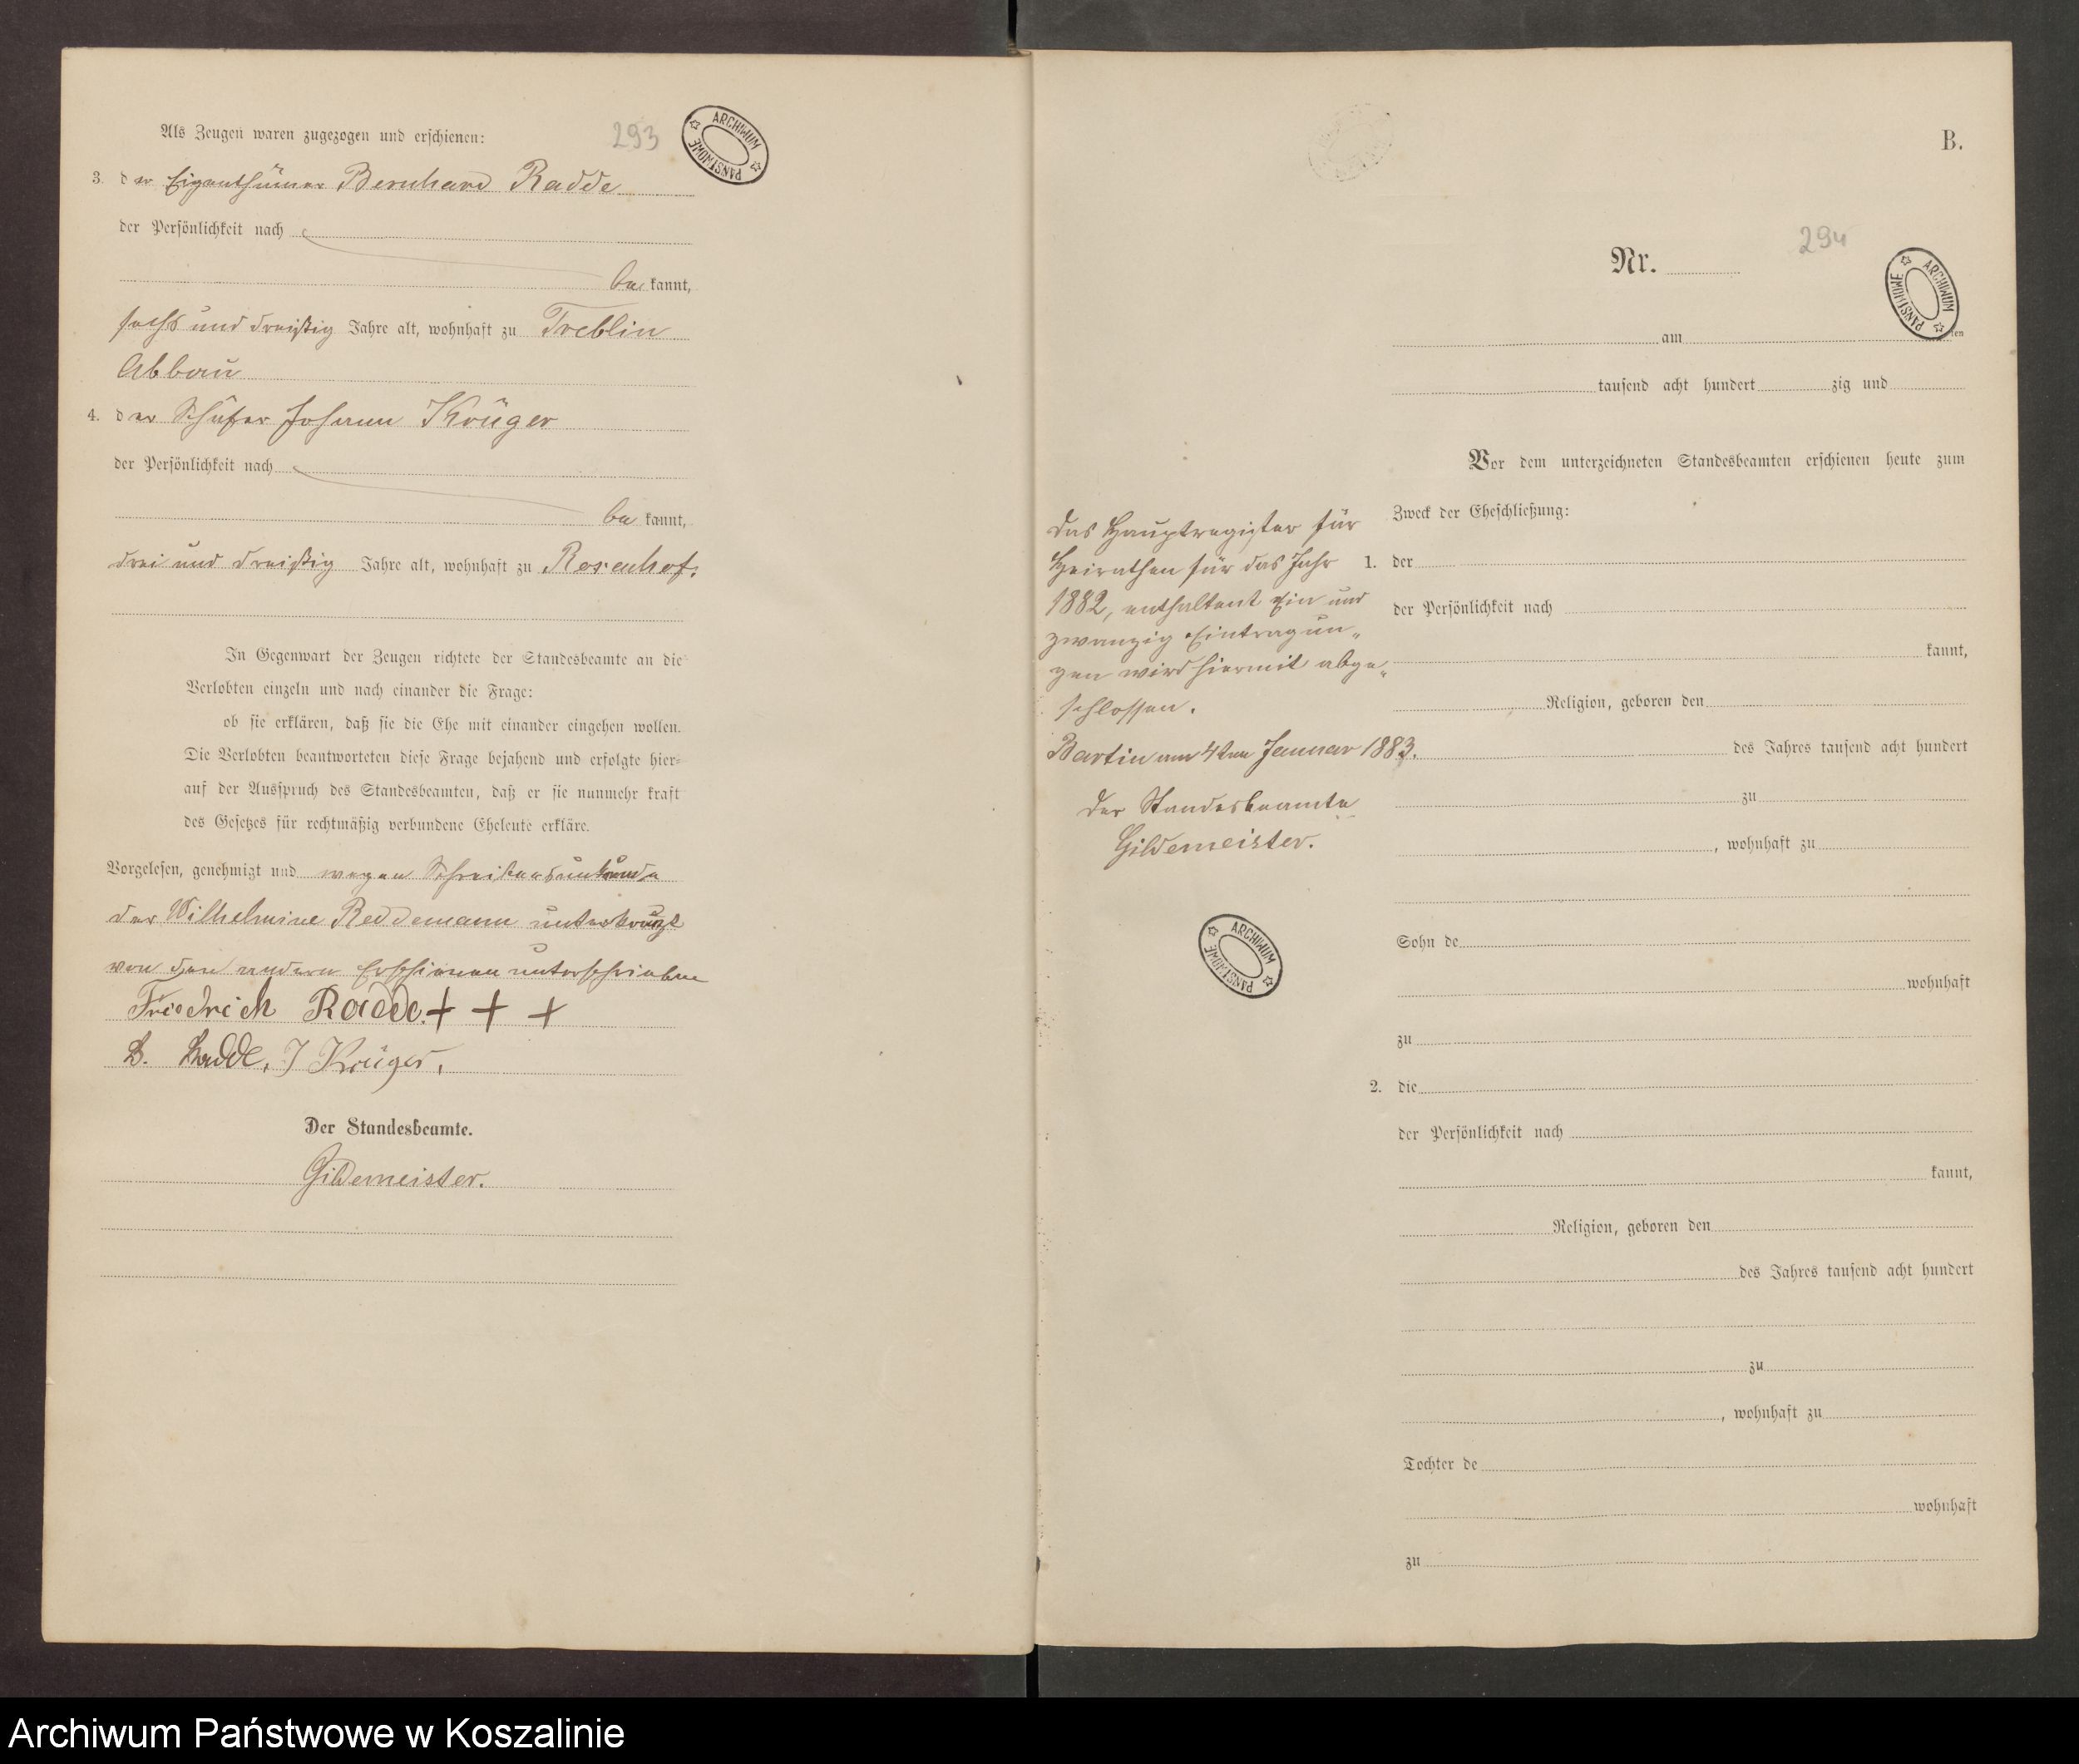 Als Zeugen waren zugezogen und erschienen:
293
ARCHIWUM PAŃSTWOWE
3. der Eigenthümer Bernhard Radde
der Persönlichkeit nach
be kannt,
sechs und dreißig Jahre alt, wohnhaft zu Treblin
Abbau
4. der Schäfer Johann Krüger
der Persönlichkeit nach
be kannt,
drei und dreißig Jahre alt, wohnhaft zu Rosenhof.
In Gegenwart der Zeugen richtete der Standesbeamte an die
Verlobten einzeln und nach einander die Frage:
ob sie erklären, daß sie die Ehe mit einander eingehen wollen.
Die Verlobten beantworteten diese Frage bejahend und erfolgte hier-
auf der Ausspruch des Standesbeamten, daß er sie nunmehr kraft
des Gesetzes für rechtmäßig verbundene Eheleute erkläre.
Vorgelesen, genehmigt und wegen Schreibensunkunde
der Wilhelmine Reddemann unterkreuzt
von den andern Erschienen unterschrieben
Friedrich Radde. + + +
B. Radde, J Krüger,
Der Standesbeamte.
Gildemeister.
B.
294
Nr.
ARCHIWUM PAŃSTWOWE
am ten
tausend acht hundert zig und
Vor dem unterzeichneten Standesbeamten erschienen heute zum
Zweck der Eheschließung:
1. der
der Persönlichkeit nach
kannt,
Religion, geboren den
des Jahres tausend acht hundert
zu
, wohnhaft zu
Sohn de
wohnhaft
zu
2. die
der Persönlichkeit nach
kannt,
Religion, geboren den
des Jahres tausend acht hundert
zu
, wohnhaft zu
Tochter de
wohnhaft
zu
Das Hauptregister für
Heirathen für das Jahr
1882, enthaltent Ein und
zwanzig Eintragun„
gen wird hiermit abge„
schlossen.
Bartin am 4ten Januar 1883.
Der Standesbeamte
Gildemeister.
ARCHIWUM PAŃSTWOWE
Archiwum Państwowe w Koszalinie